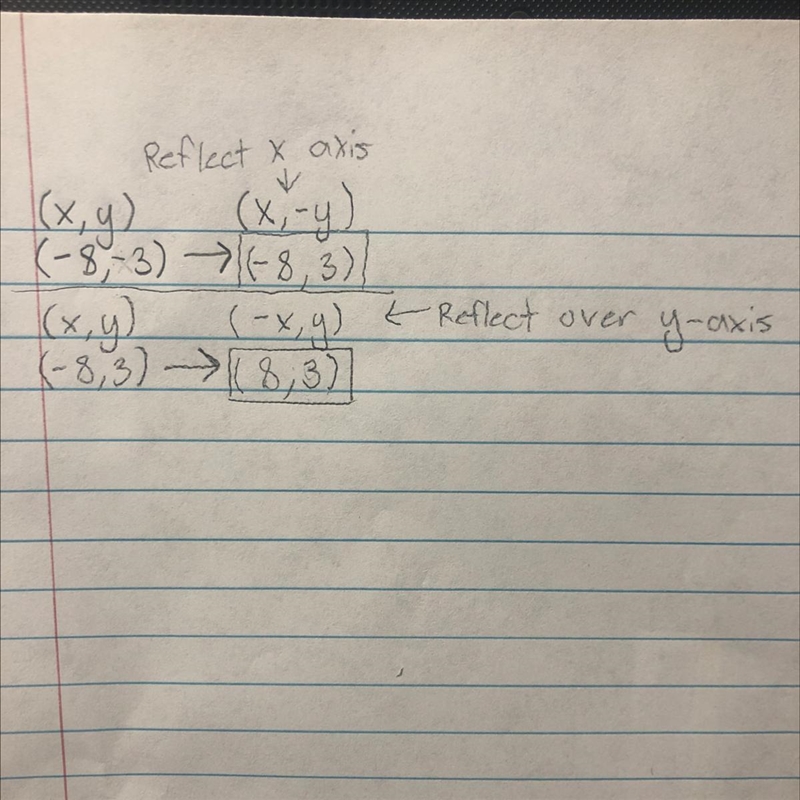 Reflect x axis
↓
(x,y) (x,-y)
(-8,-3) → (-8,3)
(x,y) (-x,y) ← Reflect over y-axis
(-8,3) → (8,3)